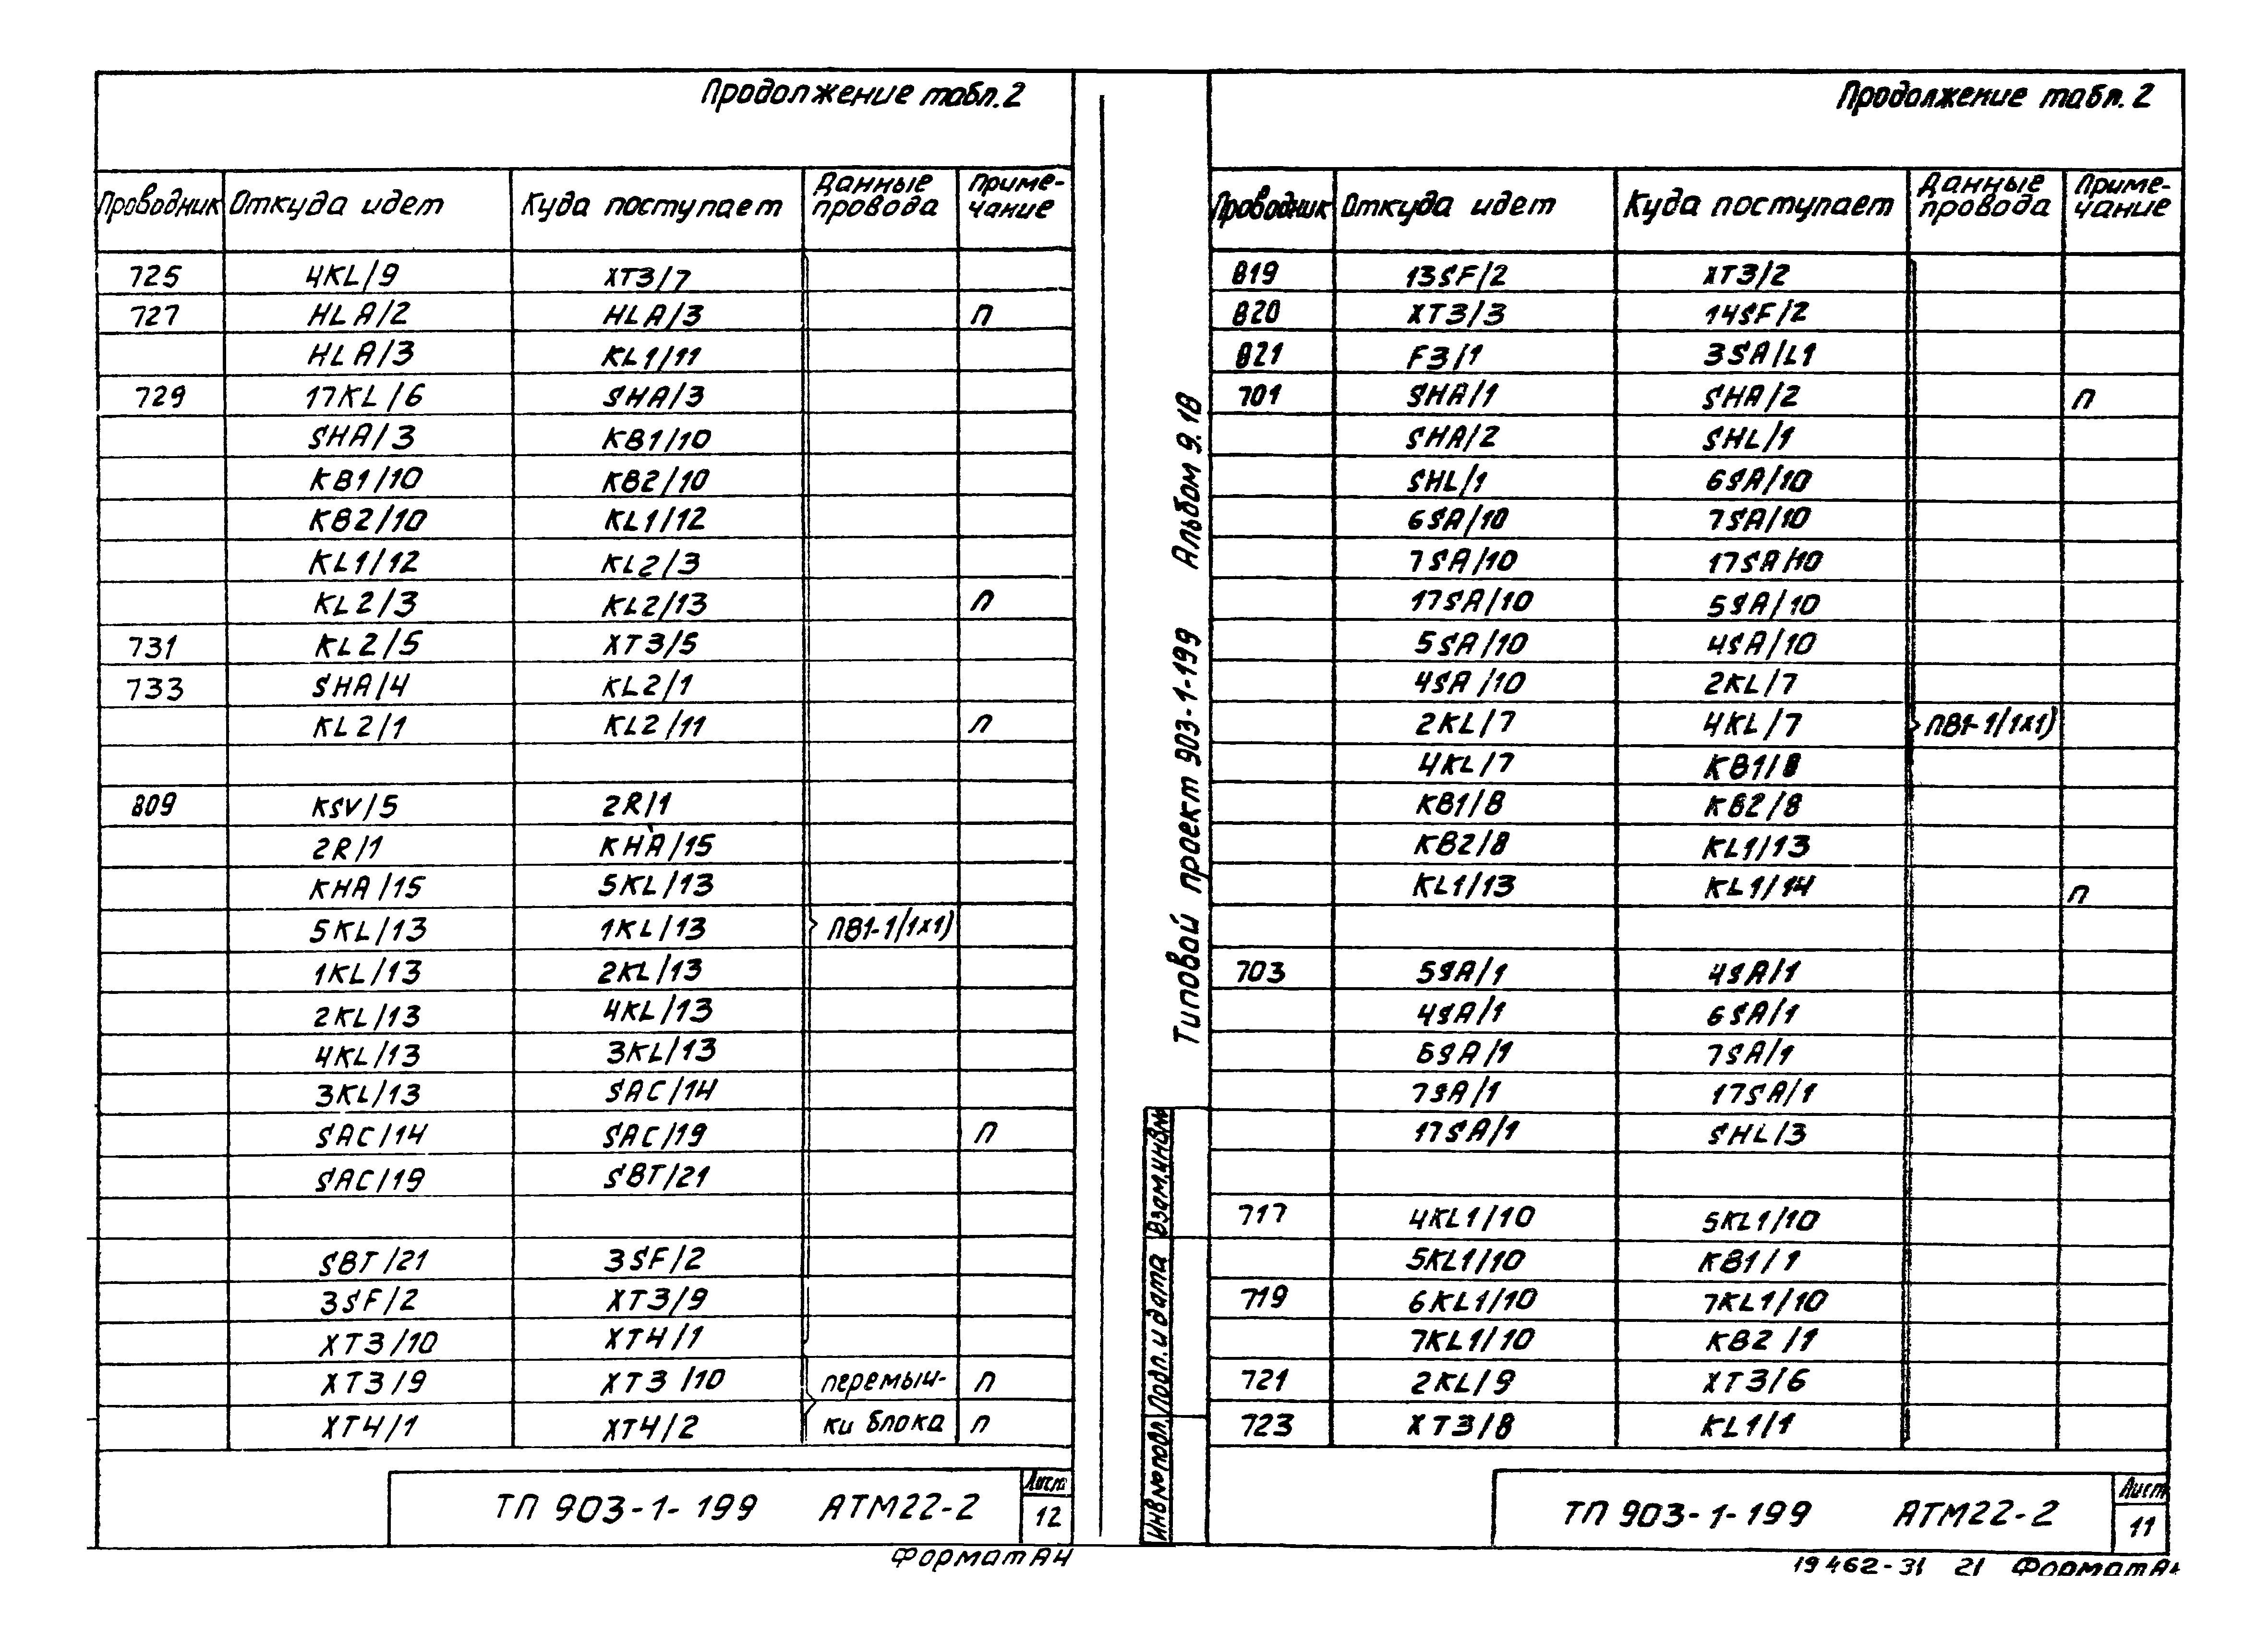 Продолжение табл. 2
Проводник Откуда идет Куда поступает Данные провода Приме-чание
725 4KL/9 XT3/7
727 HLA/2 HLA/3 п
HLA/3 KL1/11
729 17KL/6 SHA/3
SHA/3 KB1/10
KB1/10 KB2/10
KB2/10 KL1/12
KL1/12 KL2/3
KL2/3 KL2/13 п
731 KL2/5 XT3/5
733 SHA/4 KL2/1
KL2/1 KL2/11 п
809 KSV/5 2R/1
2R/1 KHA/15
KHA/15 5KL/13
5KL/13 1KL/13 ПВ1-1/1х1)
1KL/13 2KL/13
2KL/13 4KL/13
4KL/13 3KL/13
3KL/13 SAC/14
SAC/14 SAC/19 п
SAC/19 SBT/21
SBT/21 3SF/2
3SF/2 XT3/9
XT3/10 XT4/1
XT3/9 XT3/10 перемыч- п
XT4/1 XT4/2 ки блока п
ТП 903-1-199 АТМ22-2
Лист
12
Формат А4
Продолжение табл. 2
Проводник Откуда идет Куда поступает Данные провода Приме-чание
819 13SF/2 XT3/2
820 XT3/3 14SF/2
821 F3/1 3SA/L1
701 SHA/1 SHA/2 п
SHA/2 SHL/1
SHL/1 6SA/10
6SA/10 7SA/10
7SA/10 17SA/10
17SA/10 5SA/10
5SA/10 4SA/10
4SA/10 2KL/7
2KL/7 4KL/7 ПВ1-1/1х1)
4KL/7 KB1/8
KB1/8 KB2/8
KB2/8 KL1/13
KL1/13 KL1/14 п
703 5SA/1 4SA/1
4SA/1 6SA/1
6SA/1 7SA/1
7SA/1 17SA/1
17SA/1 SHL/3
717 4KL1/10 5KL1/10
5KL1/10 KB1/1
719 6KL1/10 7KL1/10
7KL1/10 KB2/1
721 2KL/9 XT3/6
723 XT3/8 KL1/1
Типовой проект 903-1-199 Альбом 9.18
Инв.№подл. Подп. и дата Взам.инв.№
ТП 903-1-199 АТМ22-2
Лист
11
19462-31 21 Формат А4